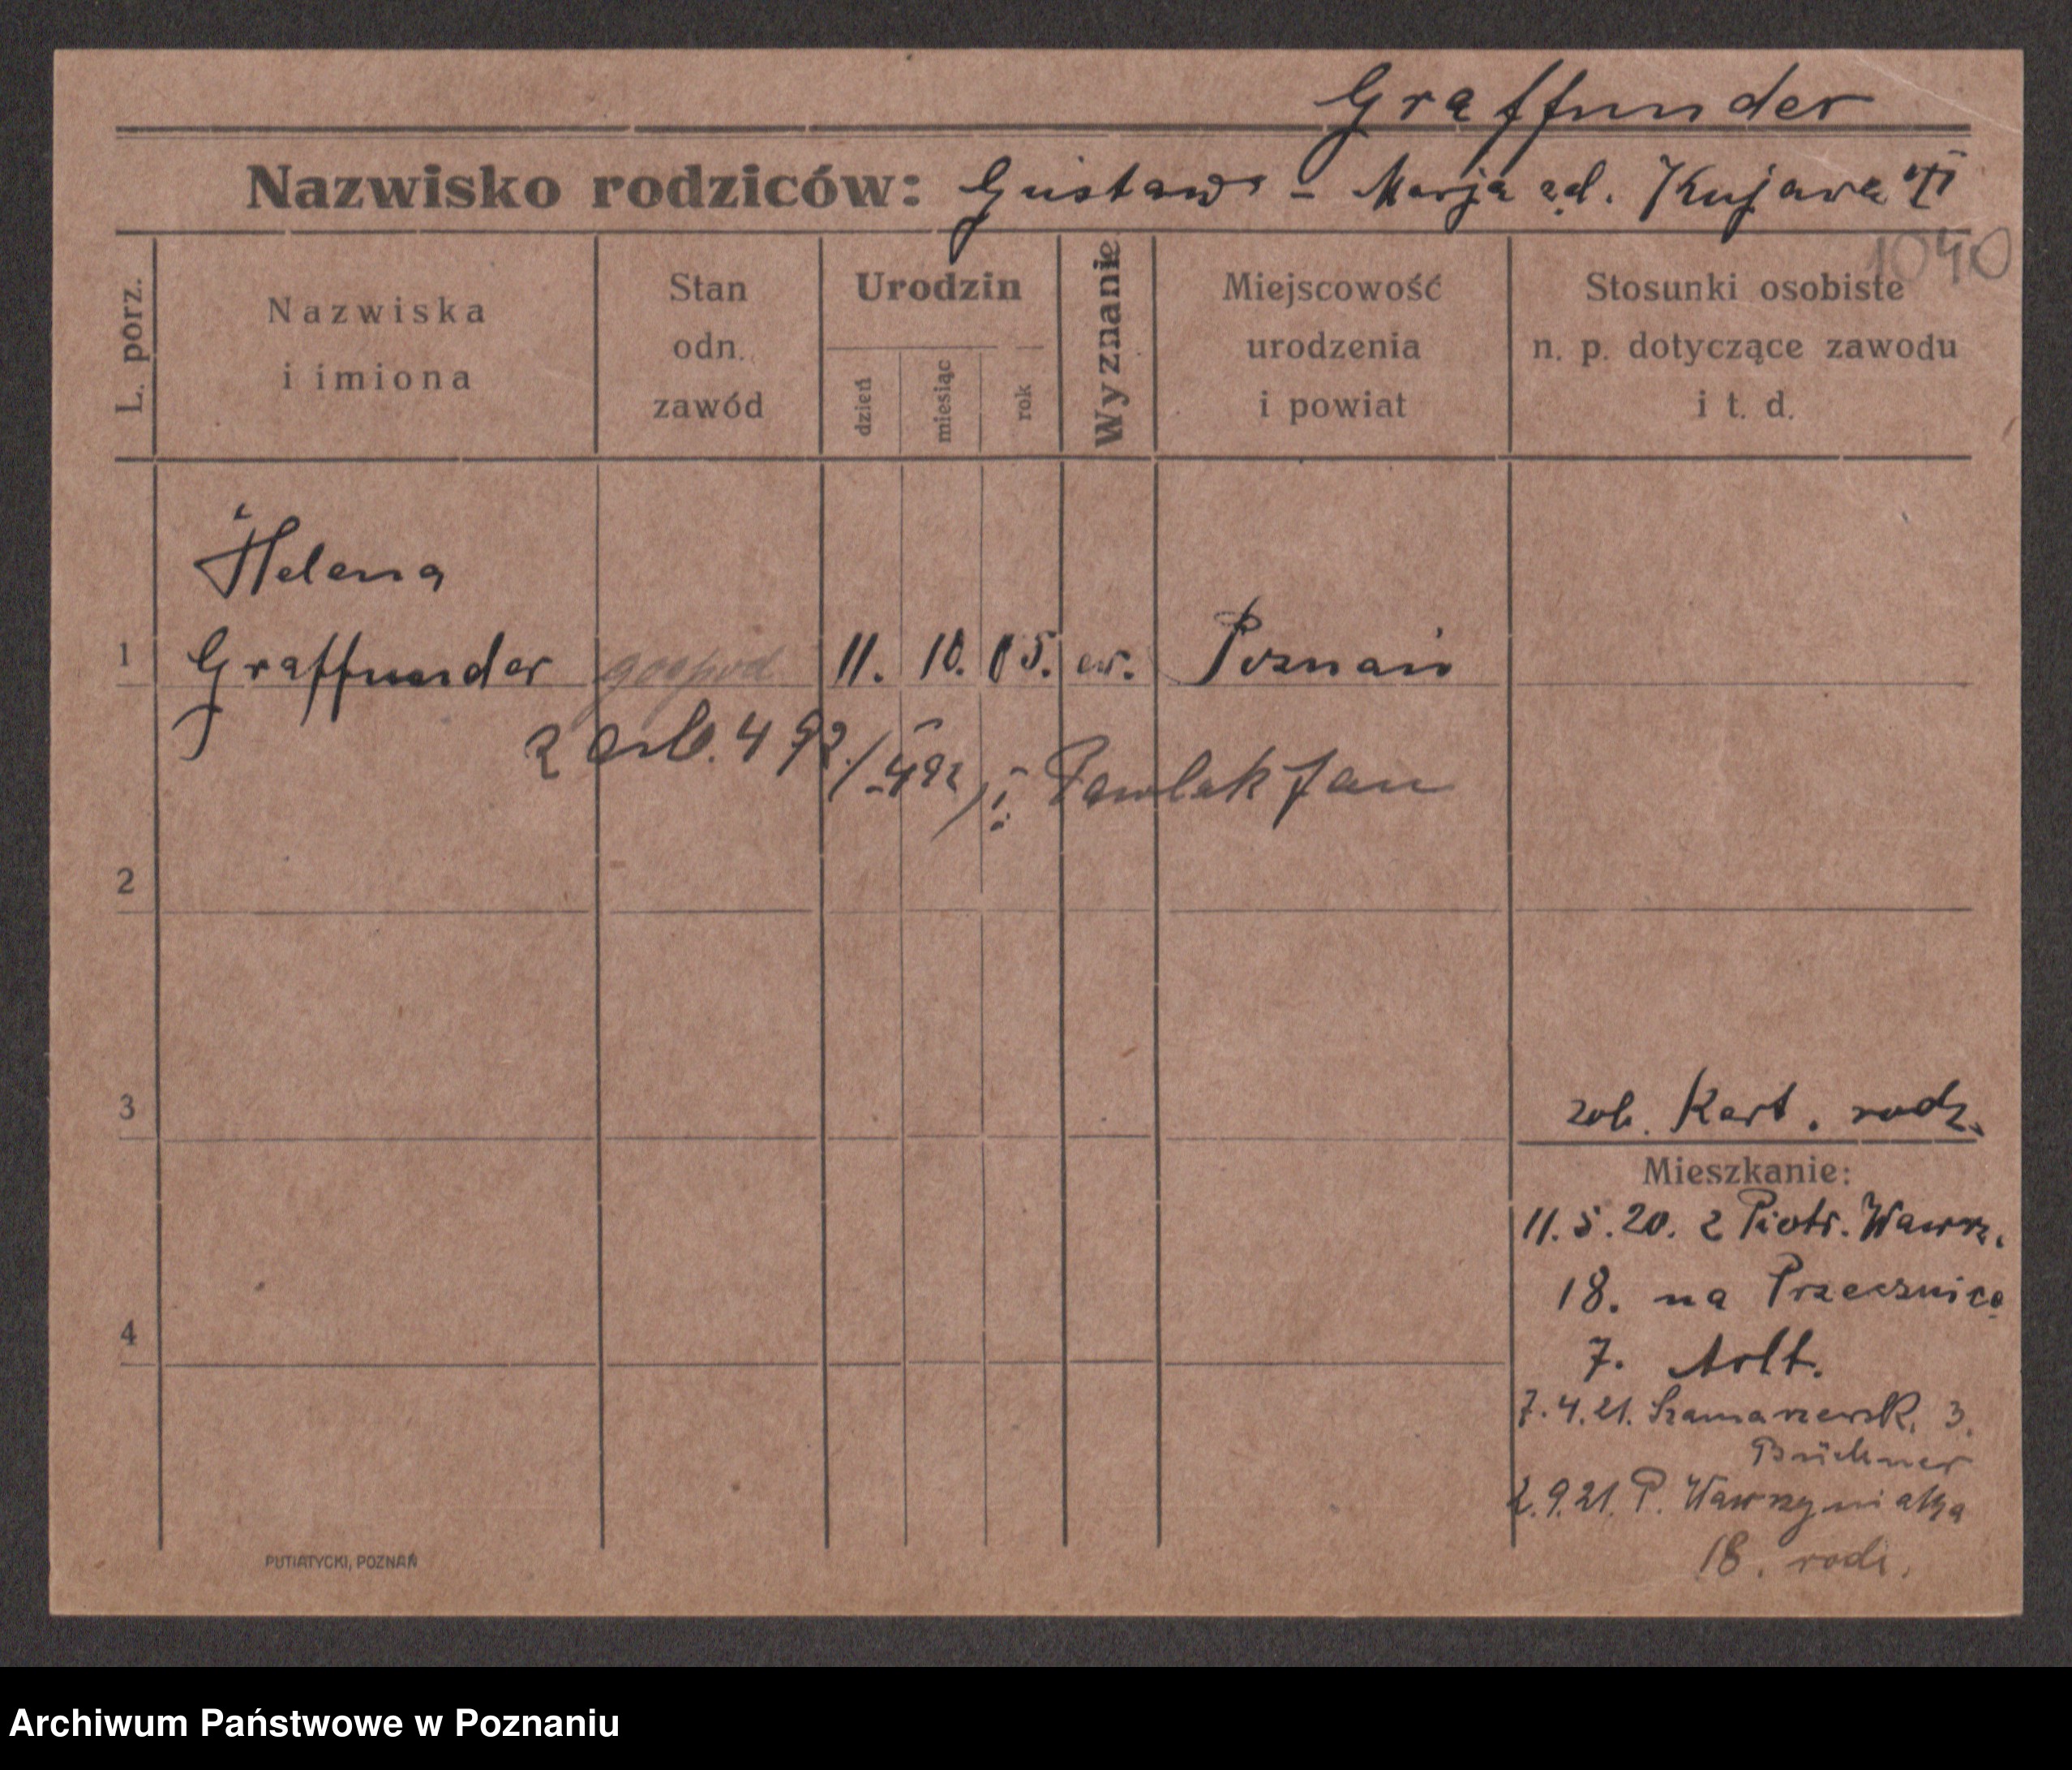 Graffunder
Nazwisko rodziców: Gustaw - Marja
1040
L. porz.
Nazwiska
i imiona
Stan
odn.
zawód
Urodzin
dzień
miesiąc
rok
Wyznanie
Miejscowość
urodzenia
i powiat
Stosunki osobiste
n. p. dotyczące zawodu
i t. d.
Helena
1 Graffunder gospod 11. 10. 05. ew. Poznań
492, Pawlak Jan
2
3
zob. Kart. rodz.
Mieszkanie:
11.5.20. z Piotr. Wawrz.
18. na Przecznicę
4
7. Arlt.
7.4.21. Szamarzewsk. 3.
Brückner
2.9.21. P. Wawrzyniaka
18. rodz.
PUTIATYCKI, POZNAŃ
Archiwum Państwowe w Poznaniu